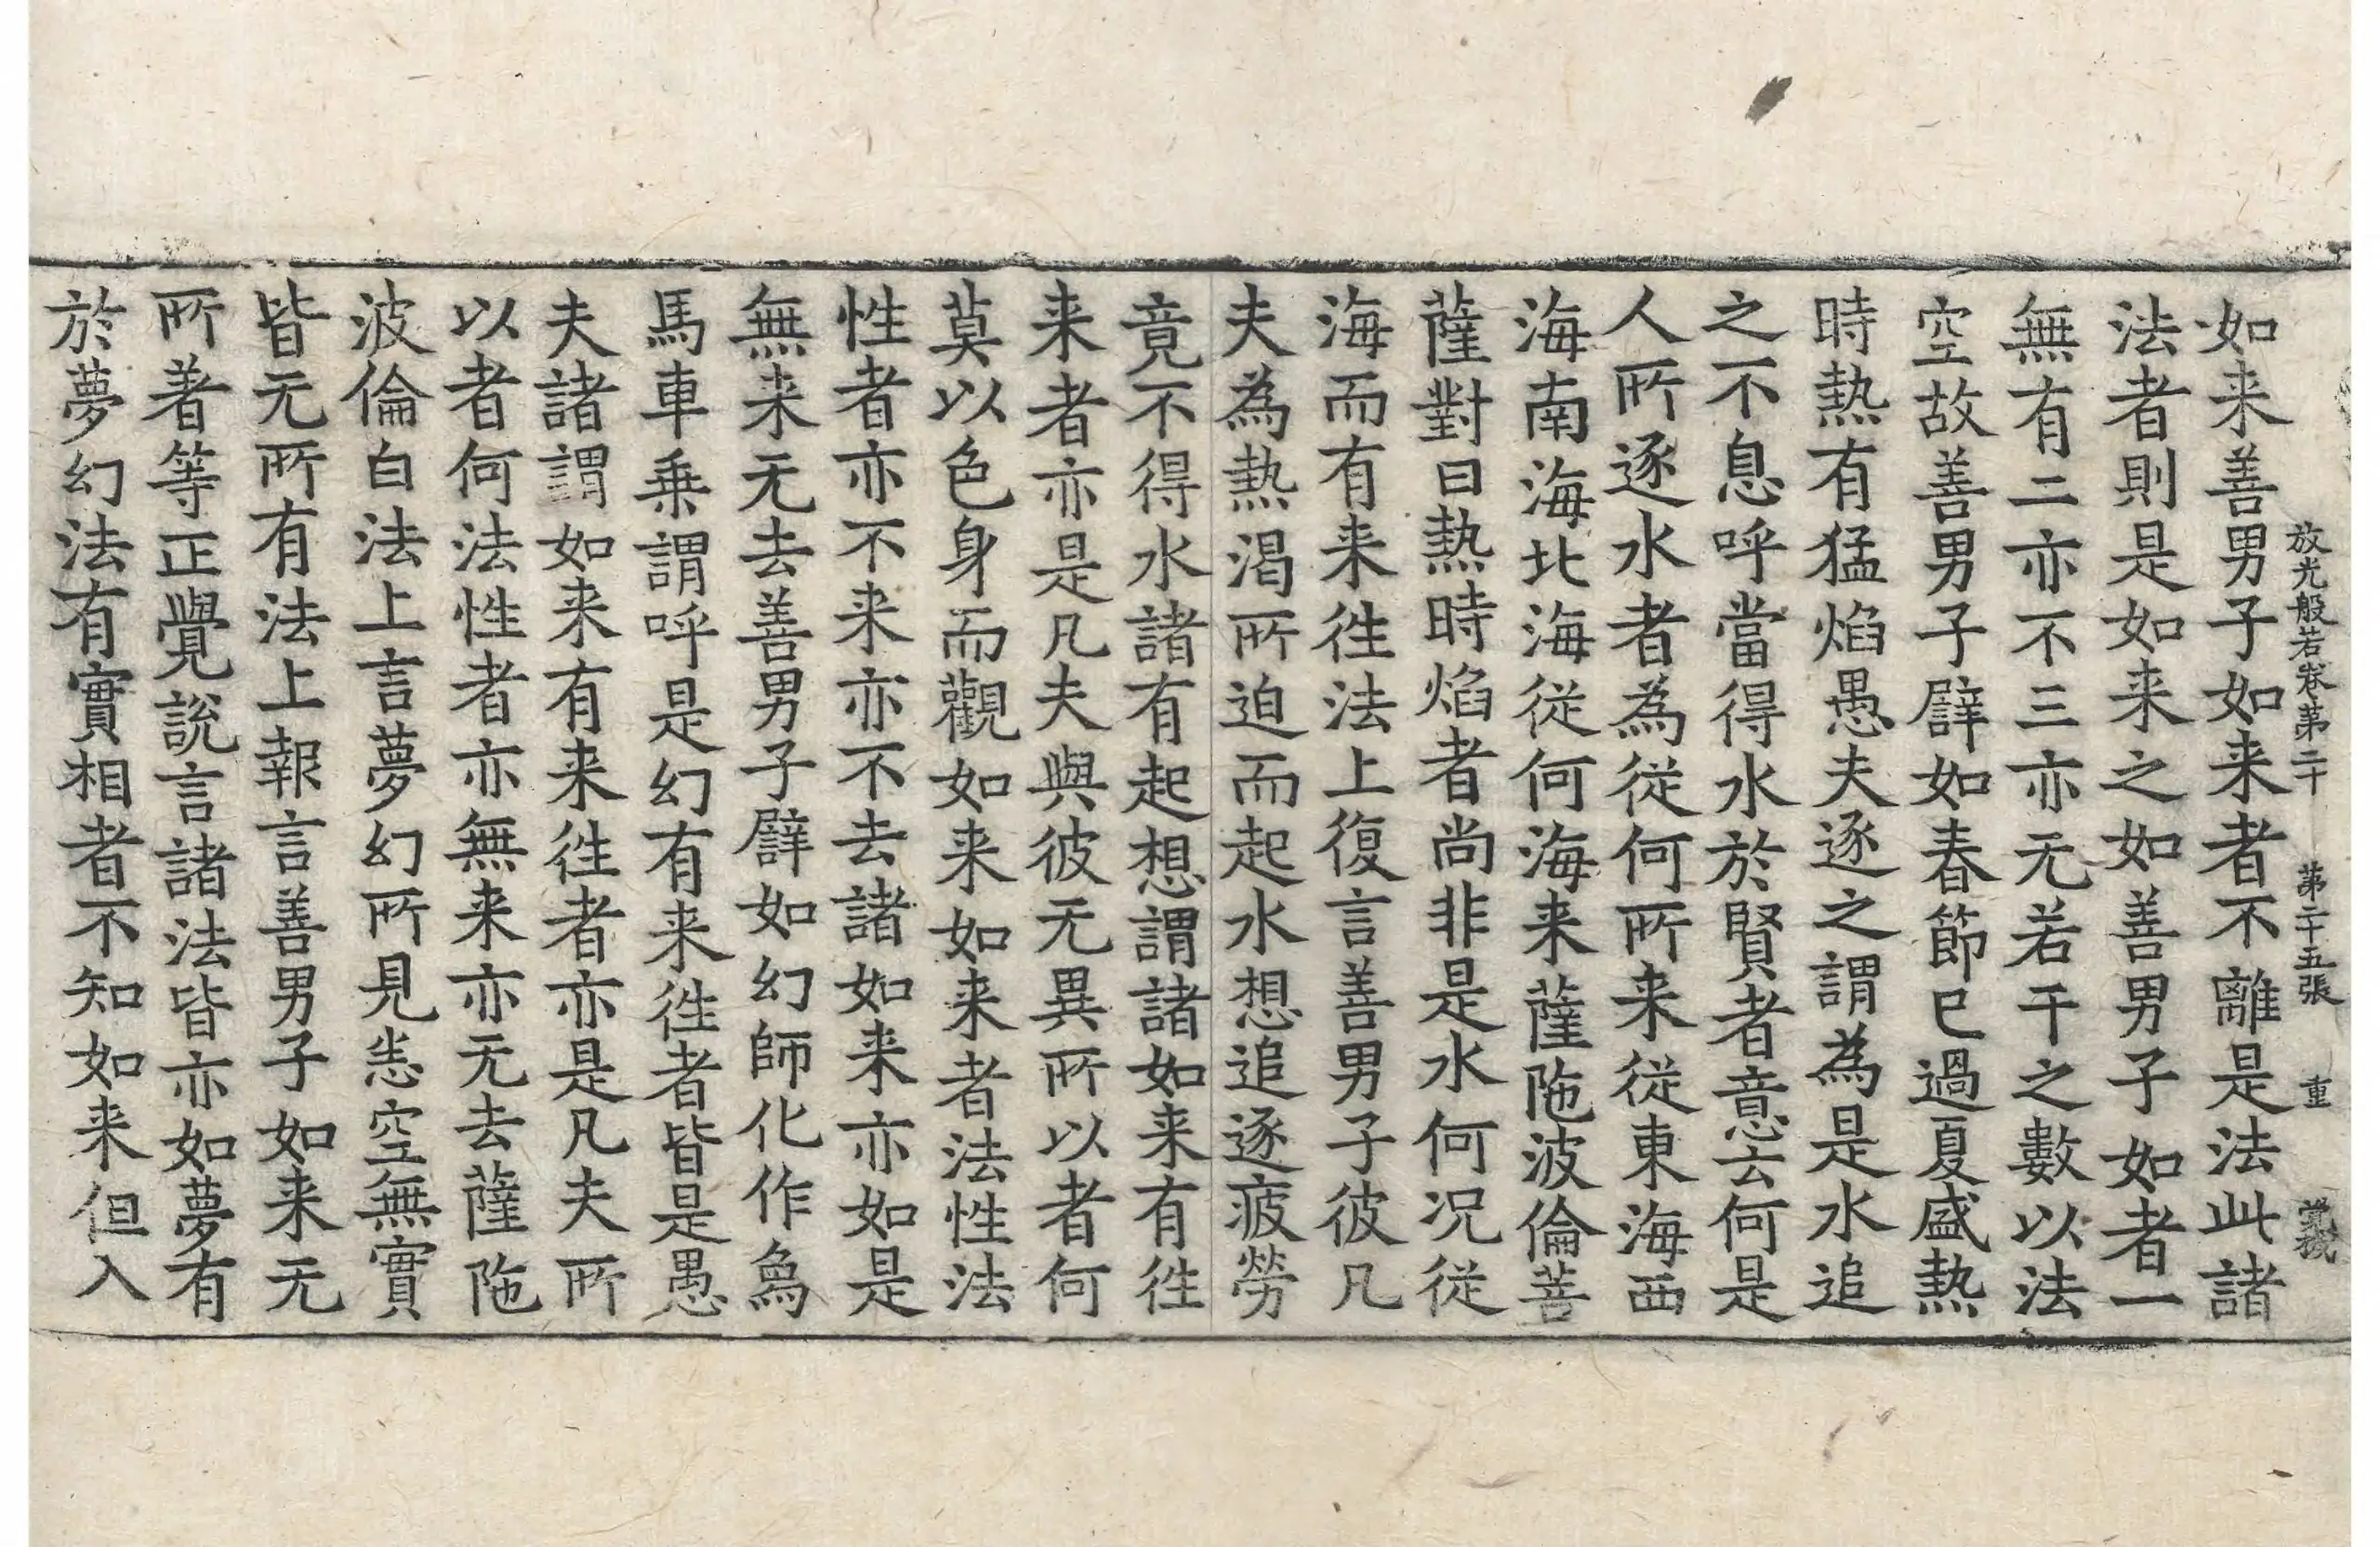 放光般若卷第二十 第二十五張 重
如来善男子如来者不離是法此諸
法者則是如来之如善男子如者一
無有二亦不三亦无若干之數以法
空故善男子辟如春節已過夏盛熱
時熱有猛焰愚夫逐之謂為是水追
之不息呼當得水於賢者意云何是
人所逐水者為從何所来從東海西
海南海北海從何海来薩陁波倫菩
薩對曰熱時焰者尚非是水何况從
海而有来徃法上復言善男子彼凡
夫為熱渴所迫而起水想追逐疲勞
竟不得水諸有起想謂諸如来有徃
来者亦是凡夫與彼无異所以者何
莫以色身而觀如来如来者法性法
性者亦不来亦不去諸如来亦如是
無来无去善男子辟如幻師化作為
馬車乗謂呼是幻有来徃者皆是愚
夫諸謂如来有来徃者亦是凡夫所
以者何法性者亦無来亦无去薩陁
波倫白法上言夢幻所見恙空無實
皆无所有法上報言善男子如来无
所著等正覺說言諸法皆亦如夢有
於夢幻法有實相者不知如来但入